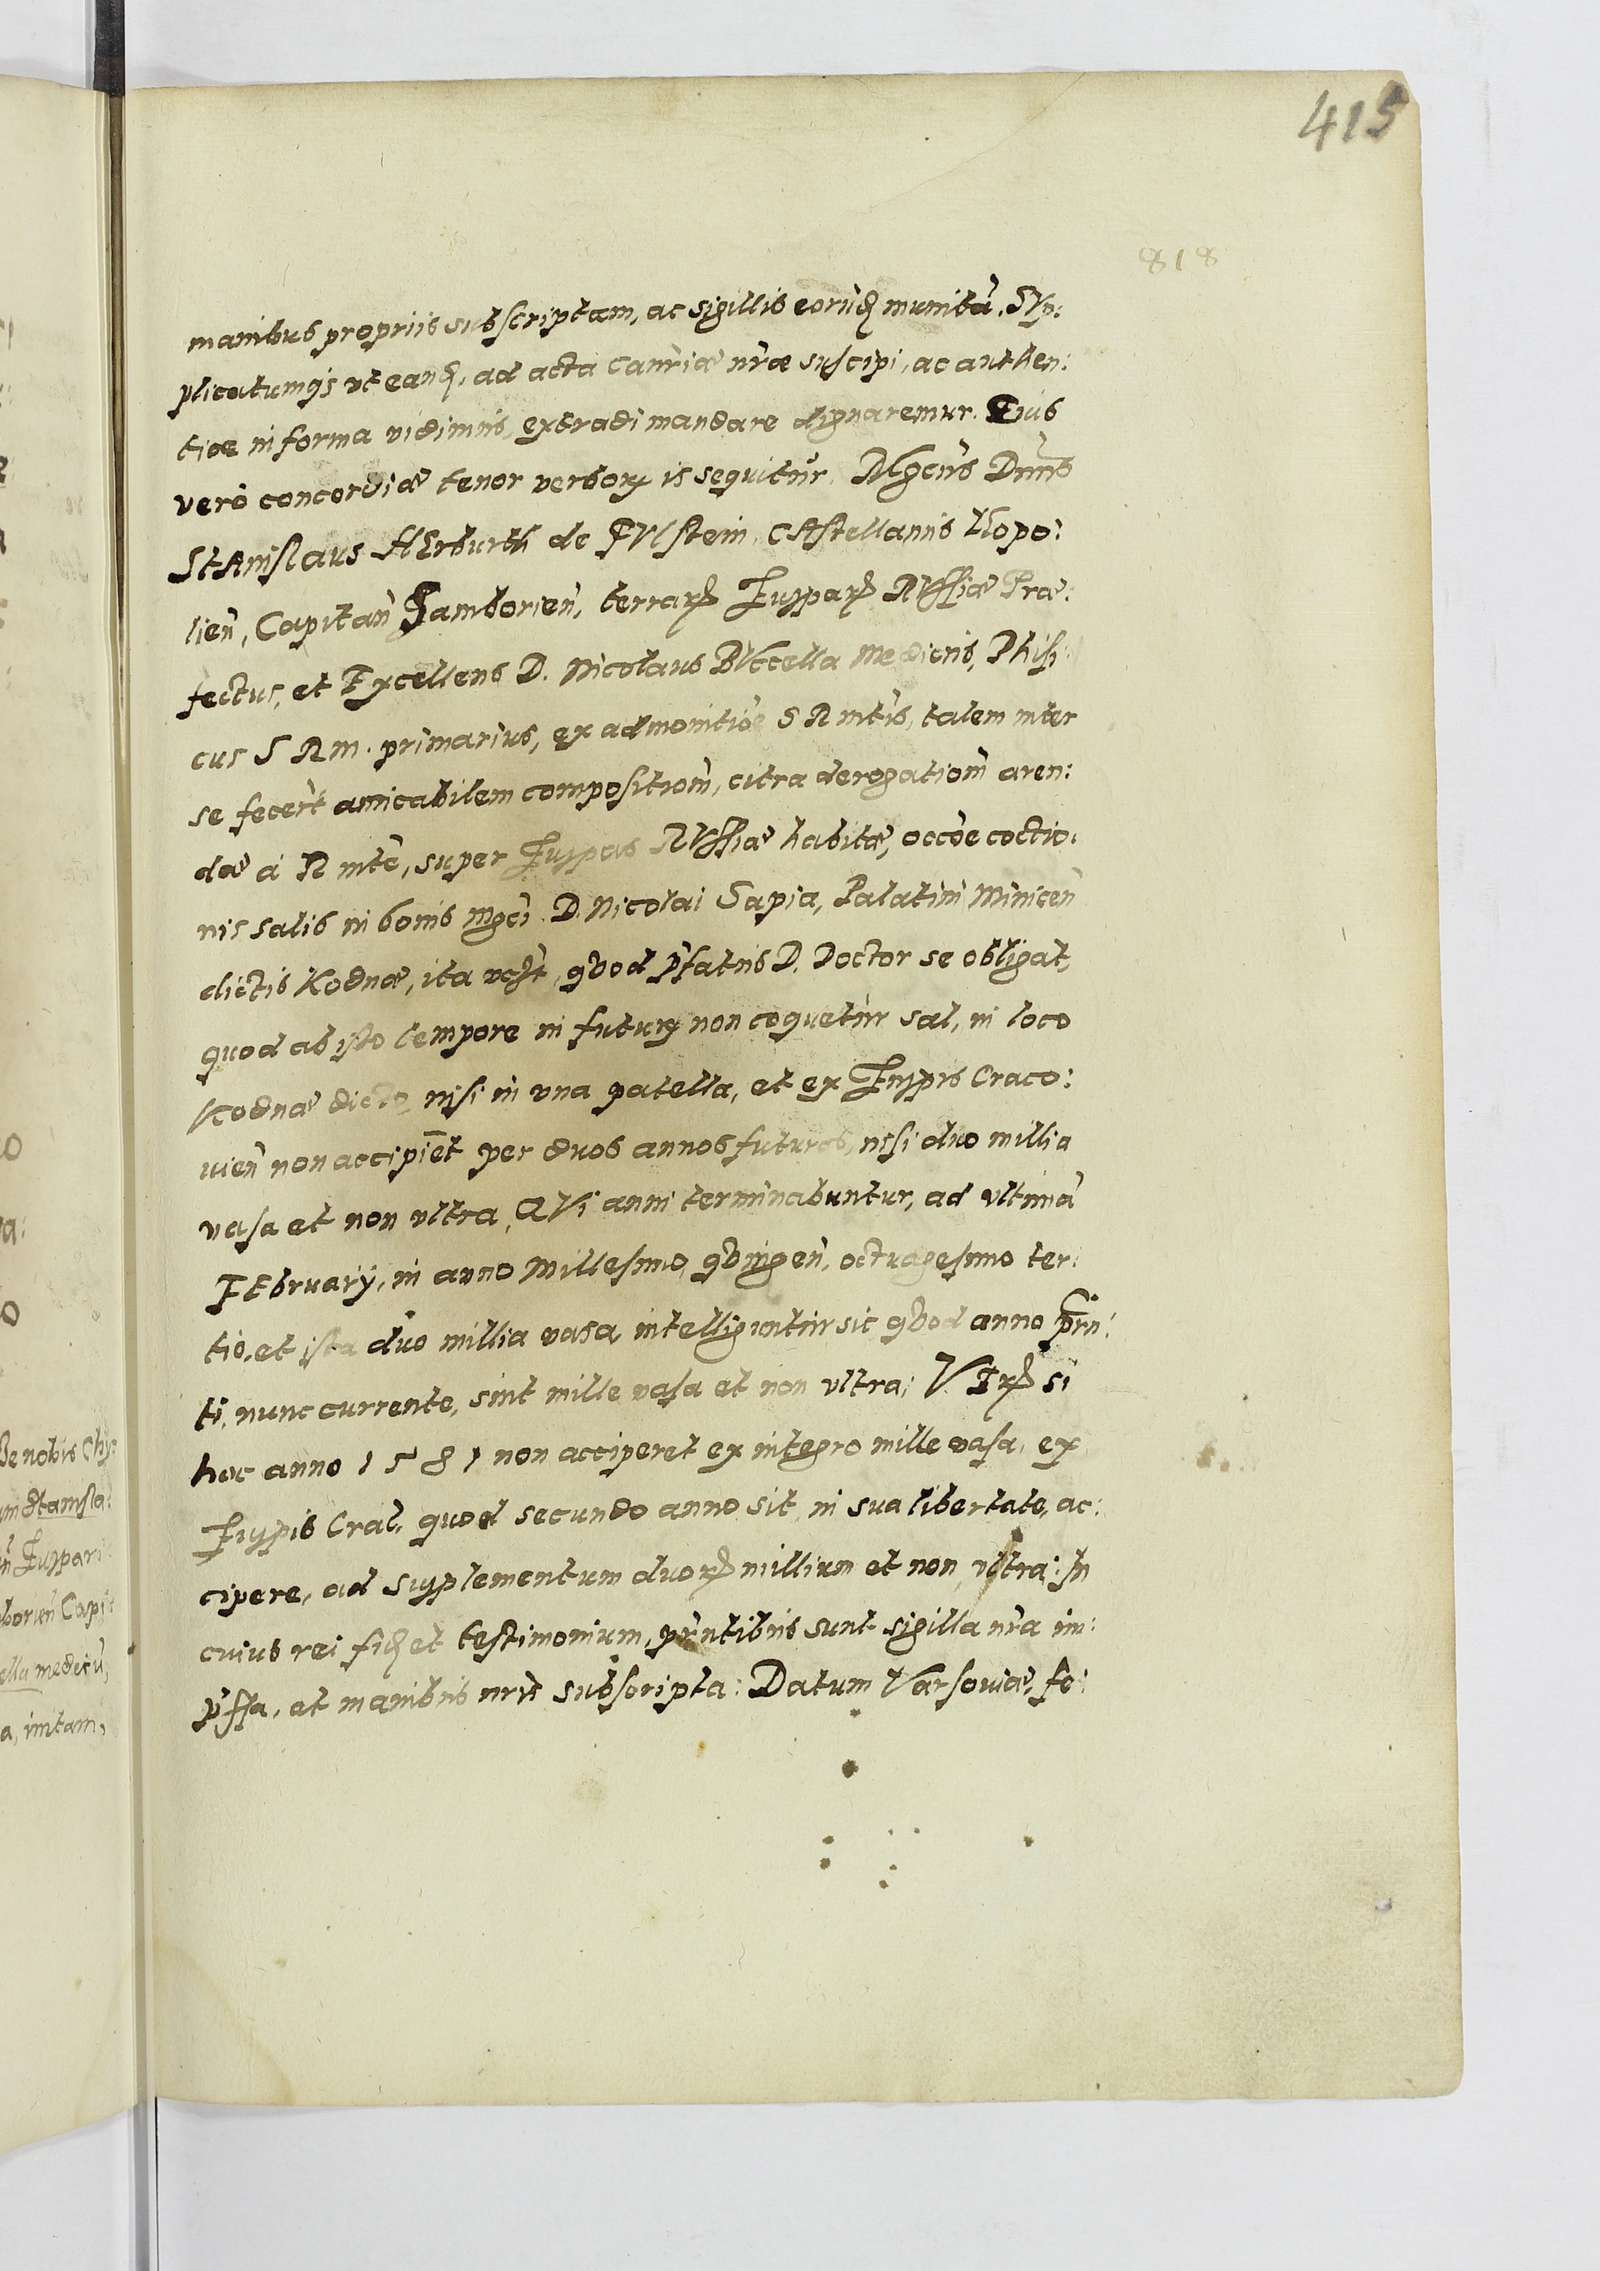 415
818
manibus propriis subscriptam, ac sigillis eorūd munitā. Sup:
plicatumqs ut eand, ad acta Canriæ nræ suscipi, ac authen:
ticæ in forma vidimus, extradi mandare dignaremur. Eius
vero concordiæ tenor verborum is sequitur. Mgcus Dnus
Stanislaus Herburth de Fulstein, Castellanus Leopo:
lien, Capitan Samborien, terrarum Zupparum Russiæ Præ:
fectus, et Excellens D. Nicolaus Buccella Medicus, Phisi
cus S R M. primarius, ex admonitioe S R mtis, talem inter
se fecert amicabilem compositiom, citra derogatiom aren:
dæ a R mte, super Zuppas Russiæ habitæ, occoe coctio:
nis salis in bonis mgci D. Nicolai Sapia, Palatini Minicen
dictis Kodnæ, ita vdzt, quod pfatus D. Doctor se obligat,
quod ab isto tempore in futurum non coquetur sal, in loco
Kodnæ dicto, nisi in una patella, et ex Zuppis Craco:
vien non accipiet per duos annos futuros, nisi duo millia
vasa et non ultra, Qui anni terminabuntur, ad ultimā
February, in anno Millesimo quingen, octuagesimo ter:
tio, et ista duo millia vasa intelliguntur sic quod anno prn:
ti, nunc currente, sint mille vasa et non ultra; Verum si
hoc anno 1581 non acciperet ex integro mille vasa, ex
Zuppis Cral, quod secundo anno sit, in sua libertate, ac:
cipere, ad supplementum duorum millium et non ultra: In
cuius rei fid et testimonium, prntibus sunt sigilla nra im:
pssa, et manibus nris subscripta: Datum Varsoviæ, fe: